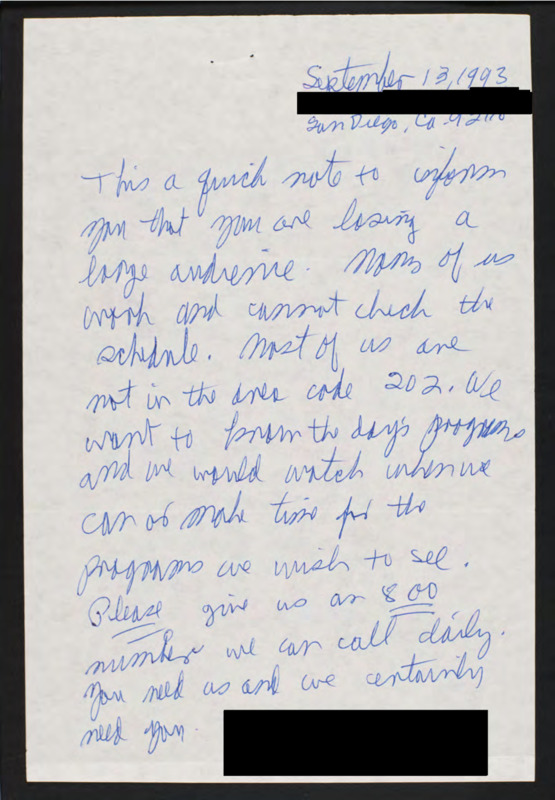 September 13, 1993
San Diego, Ca
This a quick note to inform
you that you are losing a
large audience. Many of us
work and cannot check the
schedule. Most of us are
not in the area code 202. We
want to know the day's programs
and we would watch when we
can or make time for the
programs we wish to see.
Please give us an 800
number we can call daily.
You need us and we certainly
need you.